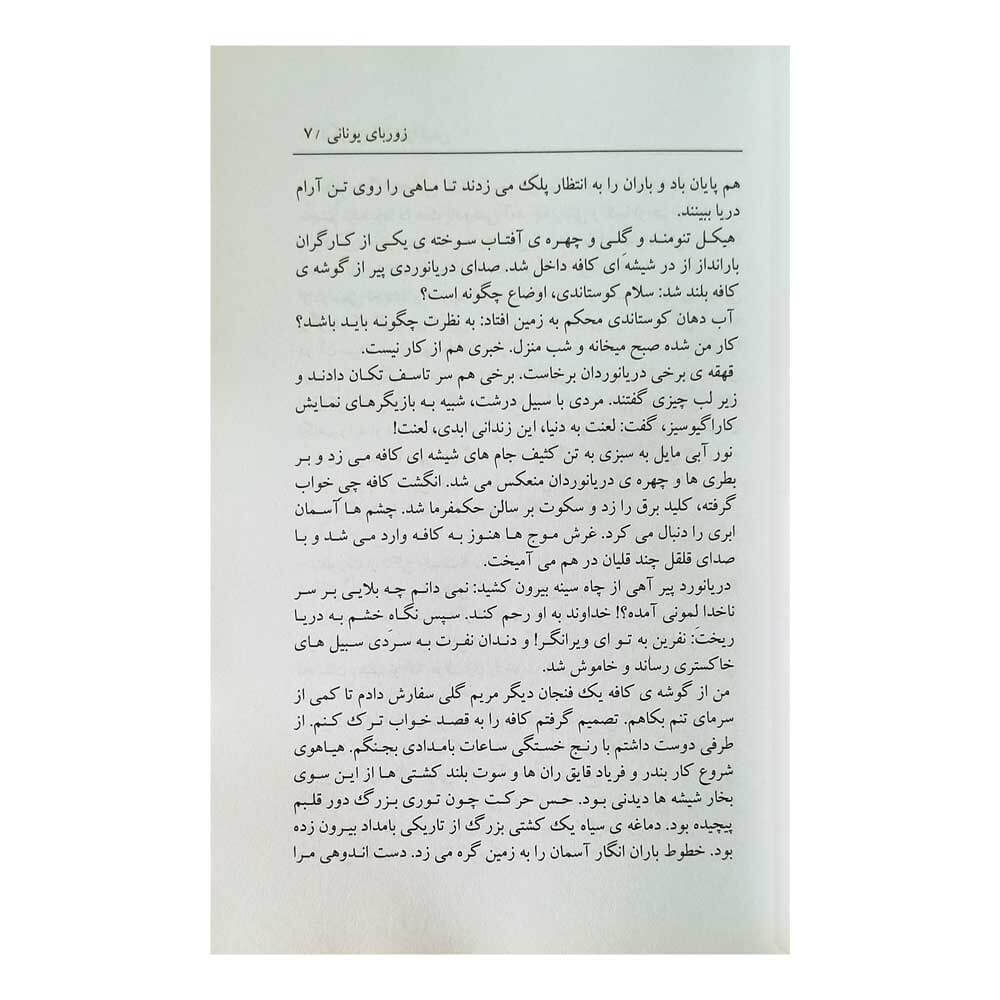 زوربای یونانی / ۷
هم پایان باد و باران را به انتظار پلک می زدند تا ماهی را روی تن آرام
دریا ببینند.
هیکل تنومند و گلی و چهره ی آفتاب سوخته ی یکی از کارگران
بارانداز از در شیشه ای کافه داخل شد. صدای دریانوردی پیر از گوشه ی
کافه بلند شد: سلام کوستاندی، اوضاع چگونه است؟
آب دهان کوستاندی محکم به زمین افتاد: به نظرت چگونه باید باشد؟
کار من شده صبح میخانه و شب منزل. خبری هم از کار نیست.
قهقه ی برخی دریانوردان برخاست. برخی هم سر تاسف تکان دادند و
زیر لب چیزی گفتند. مردی با سبیل درشت، شبیه به بازیگرهای نمایش
کاراگیوسیز، گفت: لعنت به دنیا، این زندانی ابدی، لعنت!
نور آبی مایل به سبزی به تن کثیف جام های شیشه ای کافه می زد و بر
بطری ها و چهره ی دریانوردان منعکس می شد. انگشت کافه چی خواب
گرفته، کلید برق را زد و سکوت بر سالن حکمفرما شد. چشم ها آسمان
ابری را دنبال می کرد. غرش موج ها هنوز به کافه وارد می شد و با
صدای قلقل چند قلیان در هم می آمیخت.
دریانورد پیر آهی از چاه سینه بیرون کشید: نمی دانم چه بلایی بر سر
ناخدا لمونی آمده؟! خداوند به او رحم کند. سپس نگاه خشم به دریا
ریخت: نفرین به تو ای ویرانگر! و دندان نفرت به سردی سبیل های
خاکستری رساند و خاموش شد.
من از گوشه ی کافه یک فنجان دیگر مریم گلی سفارش دادم تا کمی از
سرمای تنم بکاهم. تصمیم گرفتم کافه را به قصد خواب ترک کنم. از
طرفی دوست داشتم با رنج خستگی ساعات بامدادی بجنگم. هیاهوی
شروع کار بندر و فریاد قایق ران ها و سوت بلند کشتی ها از این سوی
بخار شیشه ها دیدنی بود. حس حرکت چون توری بزرگ دور قلبم
پیچیده بود. دماغه ی سیاه یک کشتی بزرگ از تاریکی بامداد بیرون زده
بود. خطوط باران انگار آسمان را به زمین گره می زد. دست اندوهی مرا